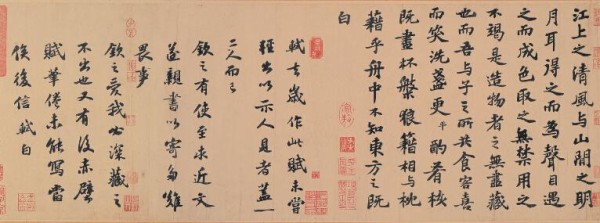 江上之清風与山間之明
月耳得之而為聲目遇
之而成色取之無禁用之
不竭是造物者之無盡藏
也而吾与子之所共食客喜
而笑洗盞更平酌肴核
既盡杯盤狼籍相与枕
藉乎舟中不知東方之既
白
軾去歲作此賦未嘗
輕出以示人見者盖一
二人而已
欽之有使至求近文
遂親書以寄多難
畏事
欽之愛我必深藏之
不出也又有後赤壁
賦筆倦未能寫當
俟後信軾白